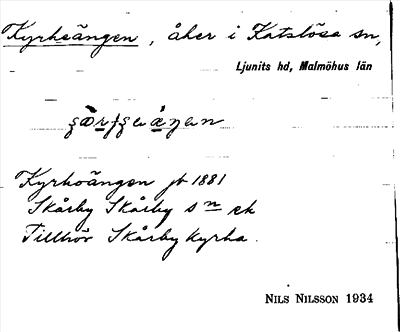 Kyrkoängen, åker i Katslösa sn,
Ljunits hd, Malmöhus län
Kyrkoängen jb 1881
Skårby Skårby sn ek
Tillhör Skårby kyrka.
NILS NILSSON 1934